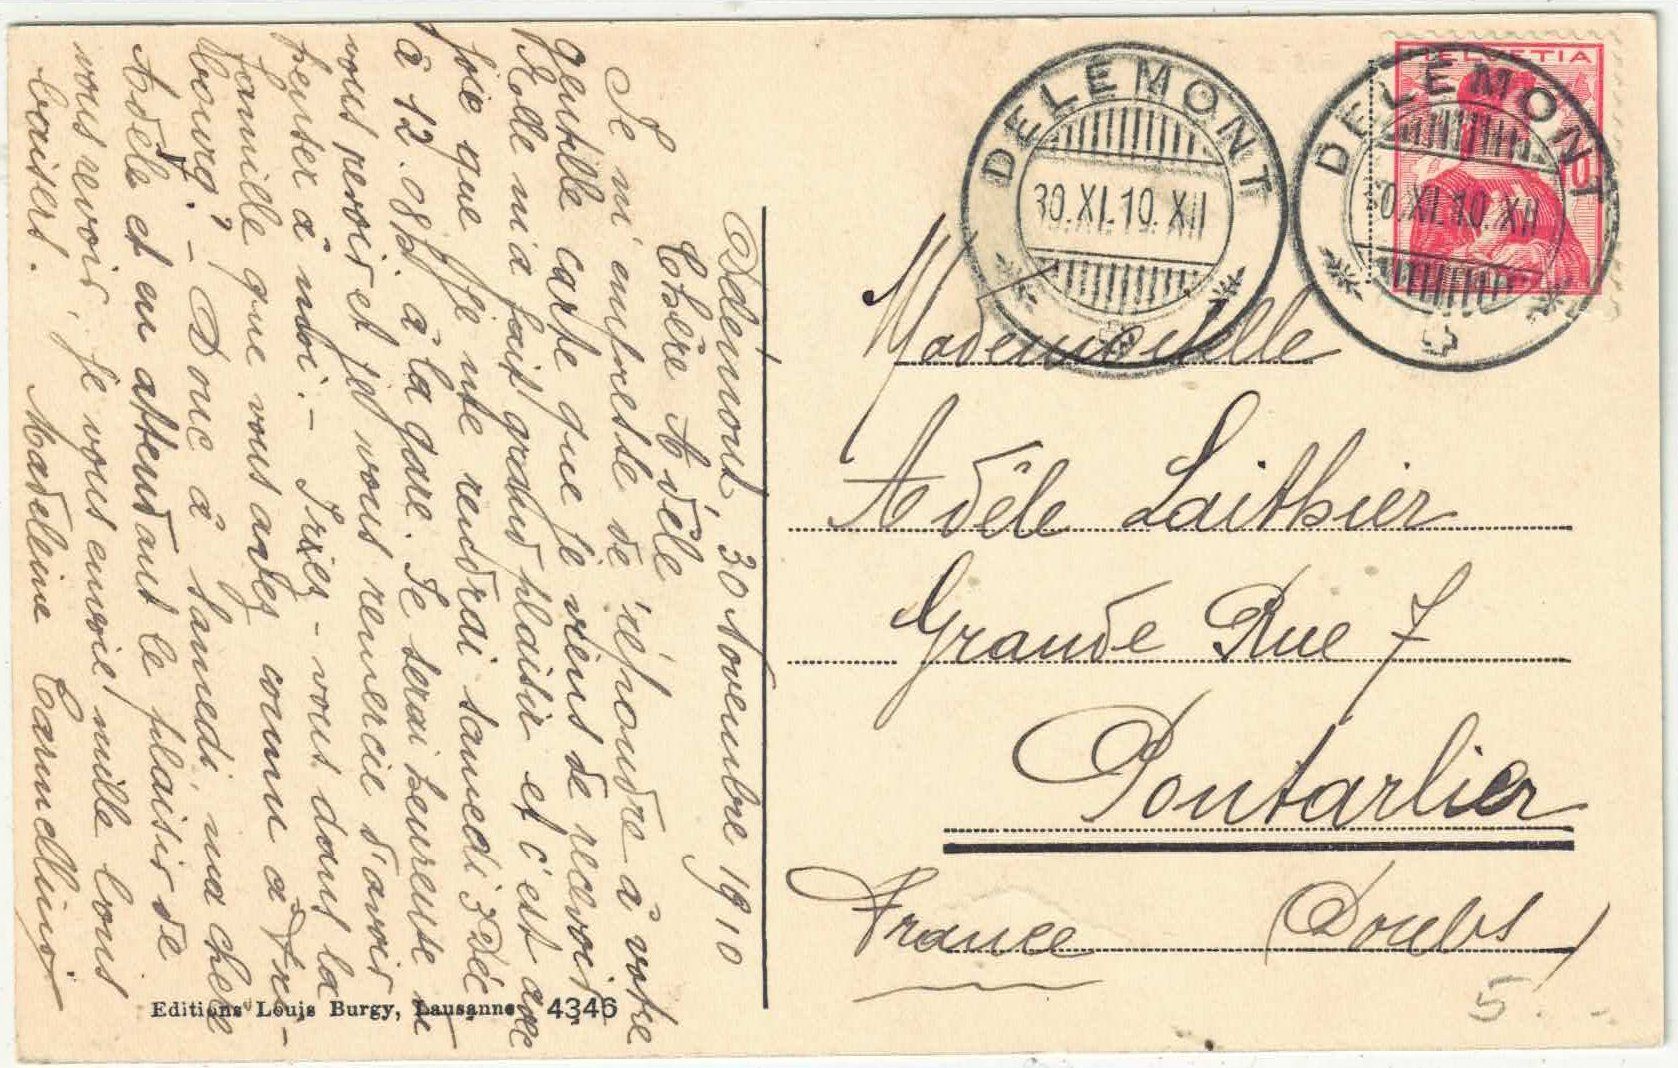 Delémont, 30 Novembre 1910
Chère Adèle
Je m'empresse de répondre à votre
gentille carte que je viens de recevoir
Elle m'a fait grand plaisir et c'est avec
joie que je me rendrai samedi 3 Déc
à 12.08 h. à la gare. Je serai heureuse de
vous revoir et je vous remercie d'avoir
penser à moi. - Iriez-vous dans la
famille que vous avez connu à Fri-
bourg? - Donc à samedi, ma chère
Adèle et en attendant le plaisir de
vous revoir, je vous envoie mille bons
baisers. Madeleine
Editions Louis Burgy, Lausanne 4346
HELVETIA
10
DELEMONT
30.XI.10.XII
DELEMONT
30.XI.10.XII
Mademoiselle
Adèle Laithier
Grande Rue 7
Pontarlier
France (Doubs)
5.-